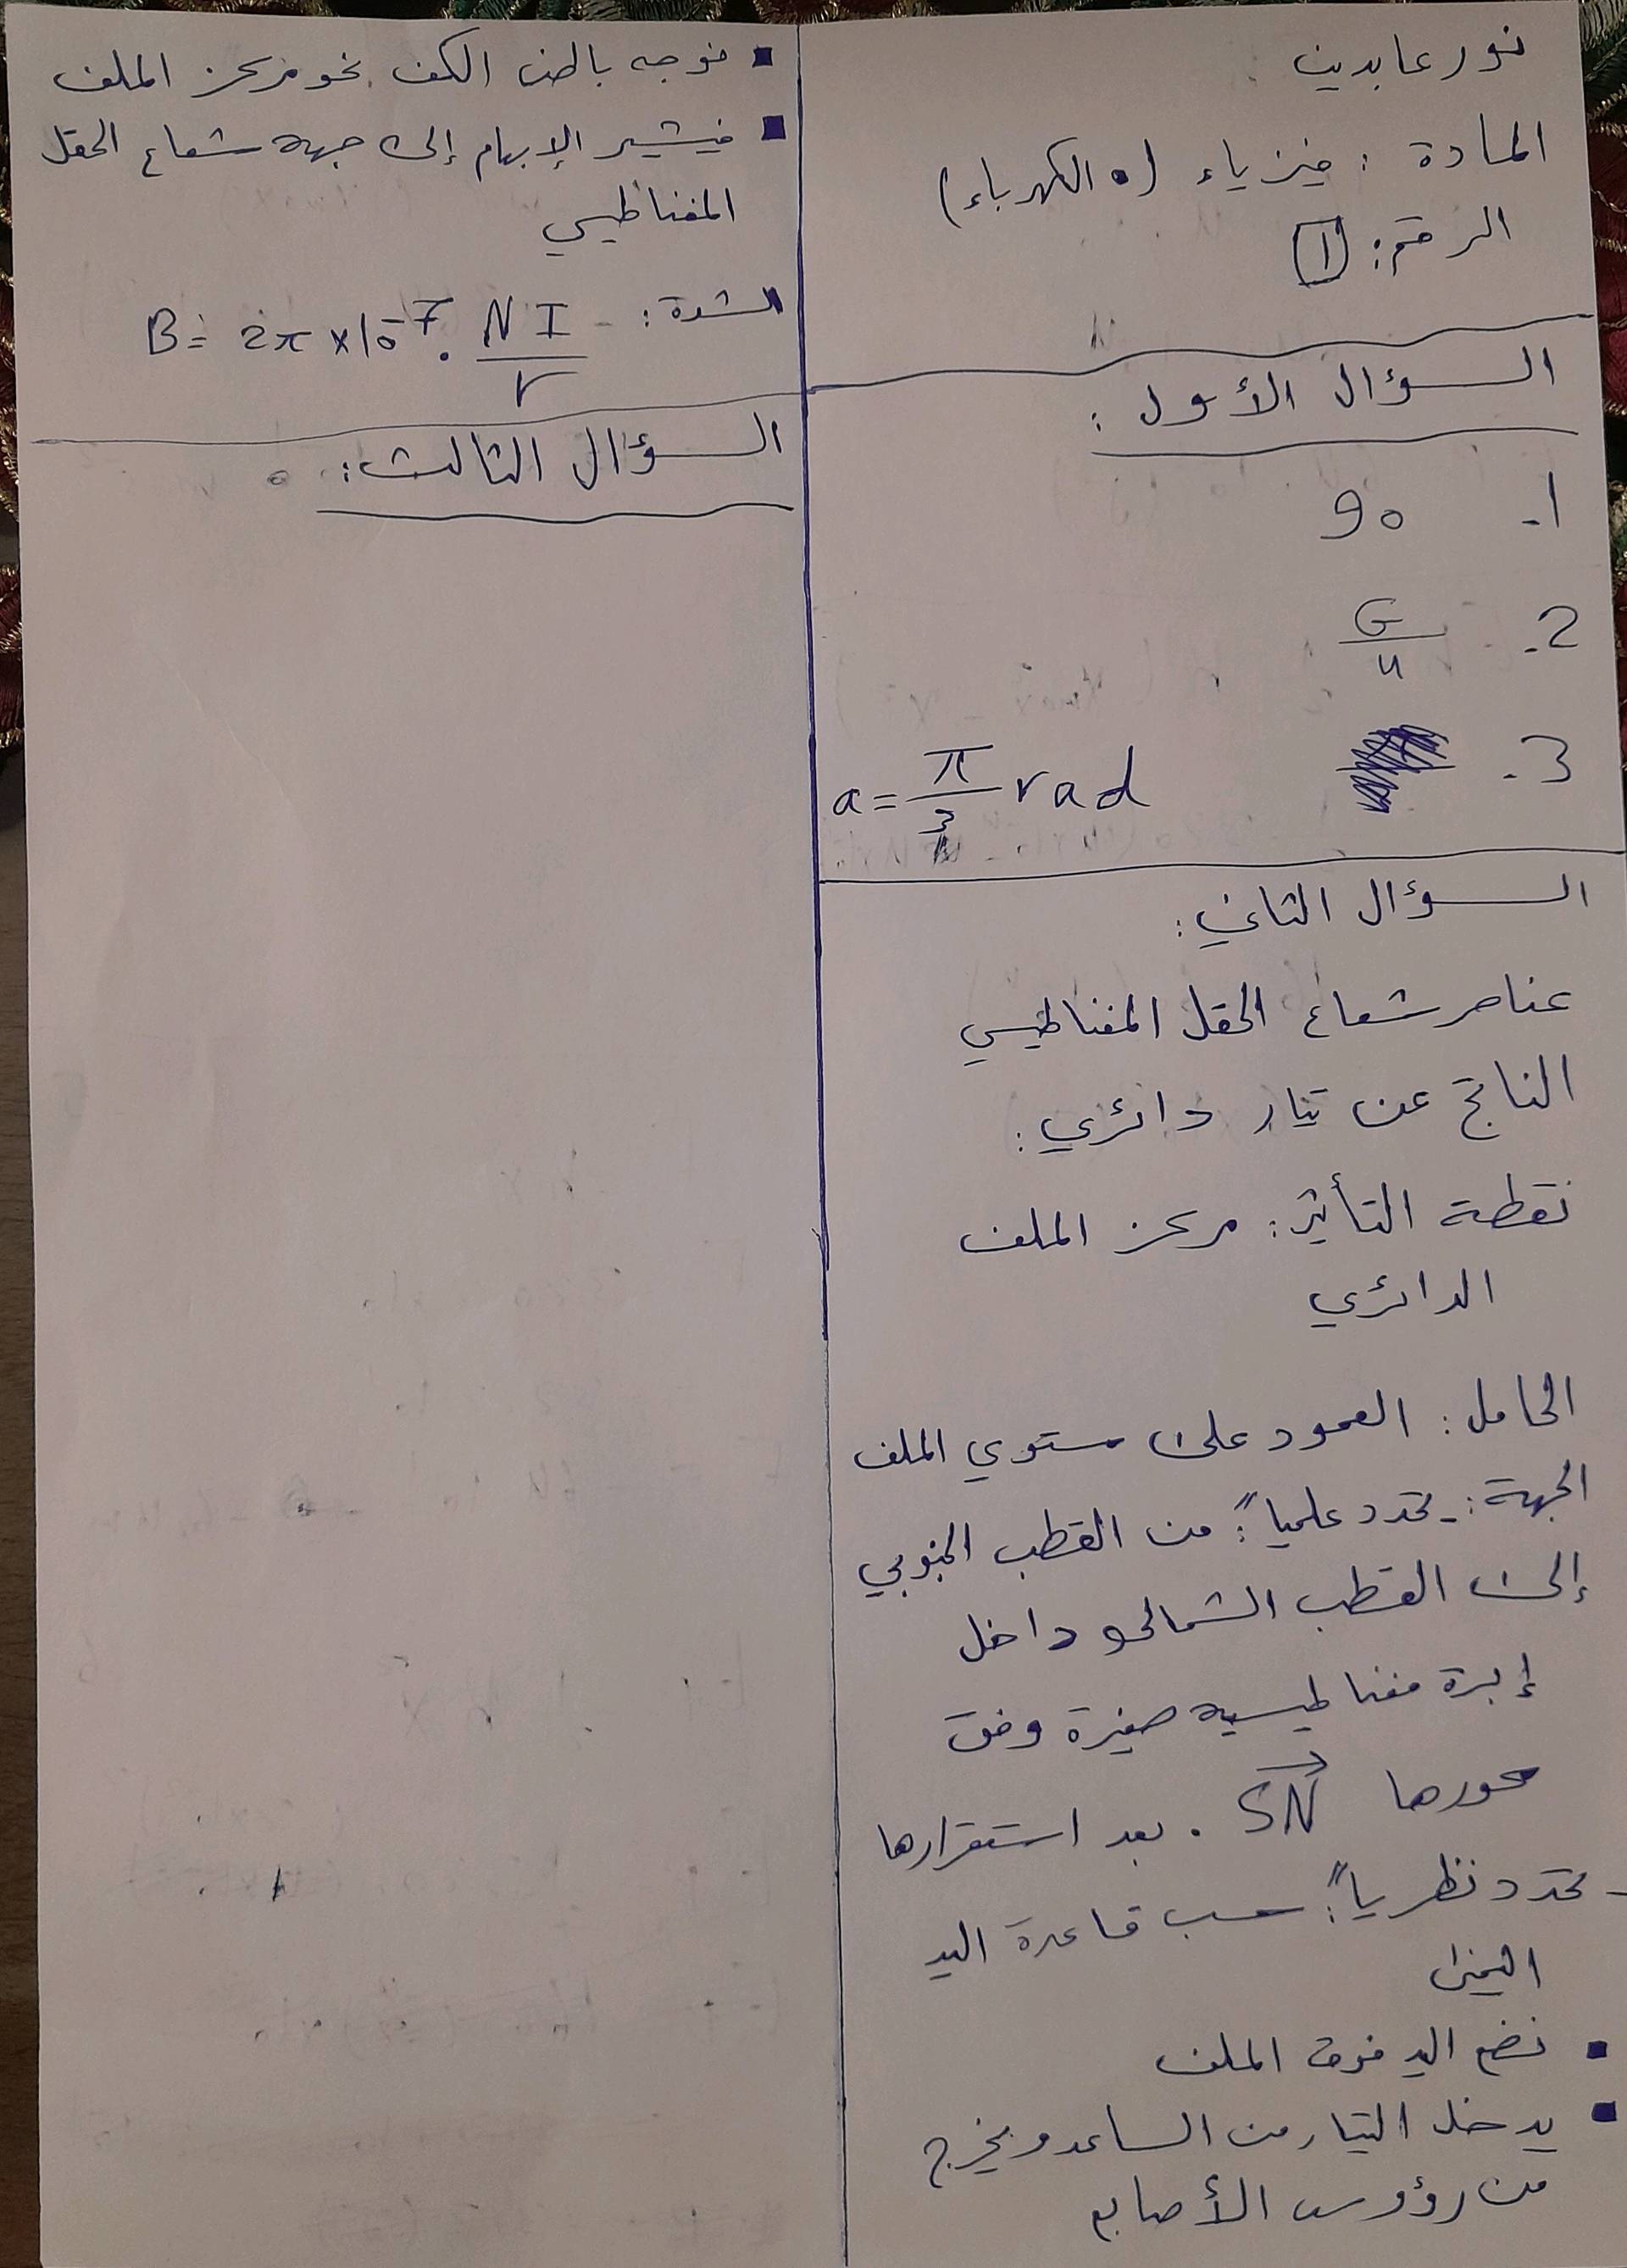 نور عابدين
المادة : فيزياء (الكهرباء)
الرقم: 1
السؤال الأول :
1- 90
2- G/4
3- a = π/3 rad
السؤال الثاني:
عناصر شعاع الحقل المغناطيسي
الناتج عن تيار دائري :
نقطة التأثير : مركز الملف
الدائري
الحامل : العمود على مستوي الملف
الجهة :- تحدد علمياً : من القطب الجنوبي
إلى القطب الشمالي داخل
إبرة مغناطيسية صغيرة وفق
محورها SN . بعد استقرارها
- تحدد نظرياً : حسب قاعدة اليد
اليمنى
▪ نضع اليد فوق الملف
▪ يدخل التيار من الساعد ويخرج
من رؤوس الأصابع
▪ نوجه باطن الكف نحو مركز الملف
▪ فيشير الإبهام إلى جهة شعاع الحقل
المغناطيسي
الشدة : - B = 2π × 10⁻⁷ . NI/r
السؤال الثالث :